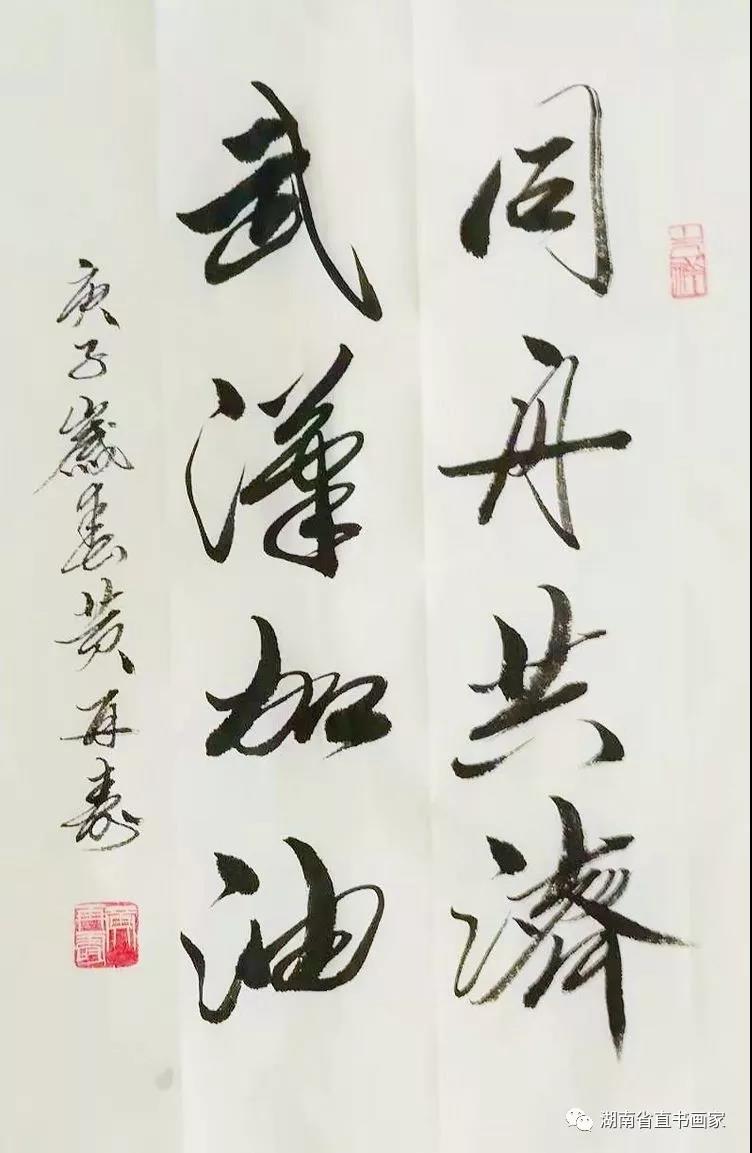 同舟共濟
武漢加油
庚子歲春黄再壽
湖南省直书画家